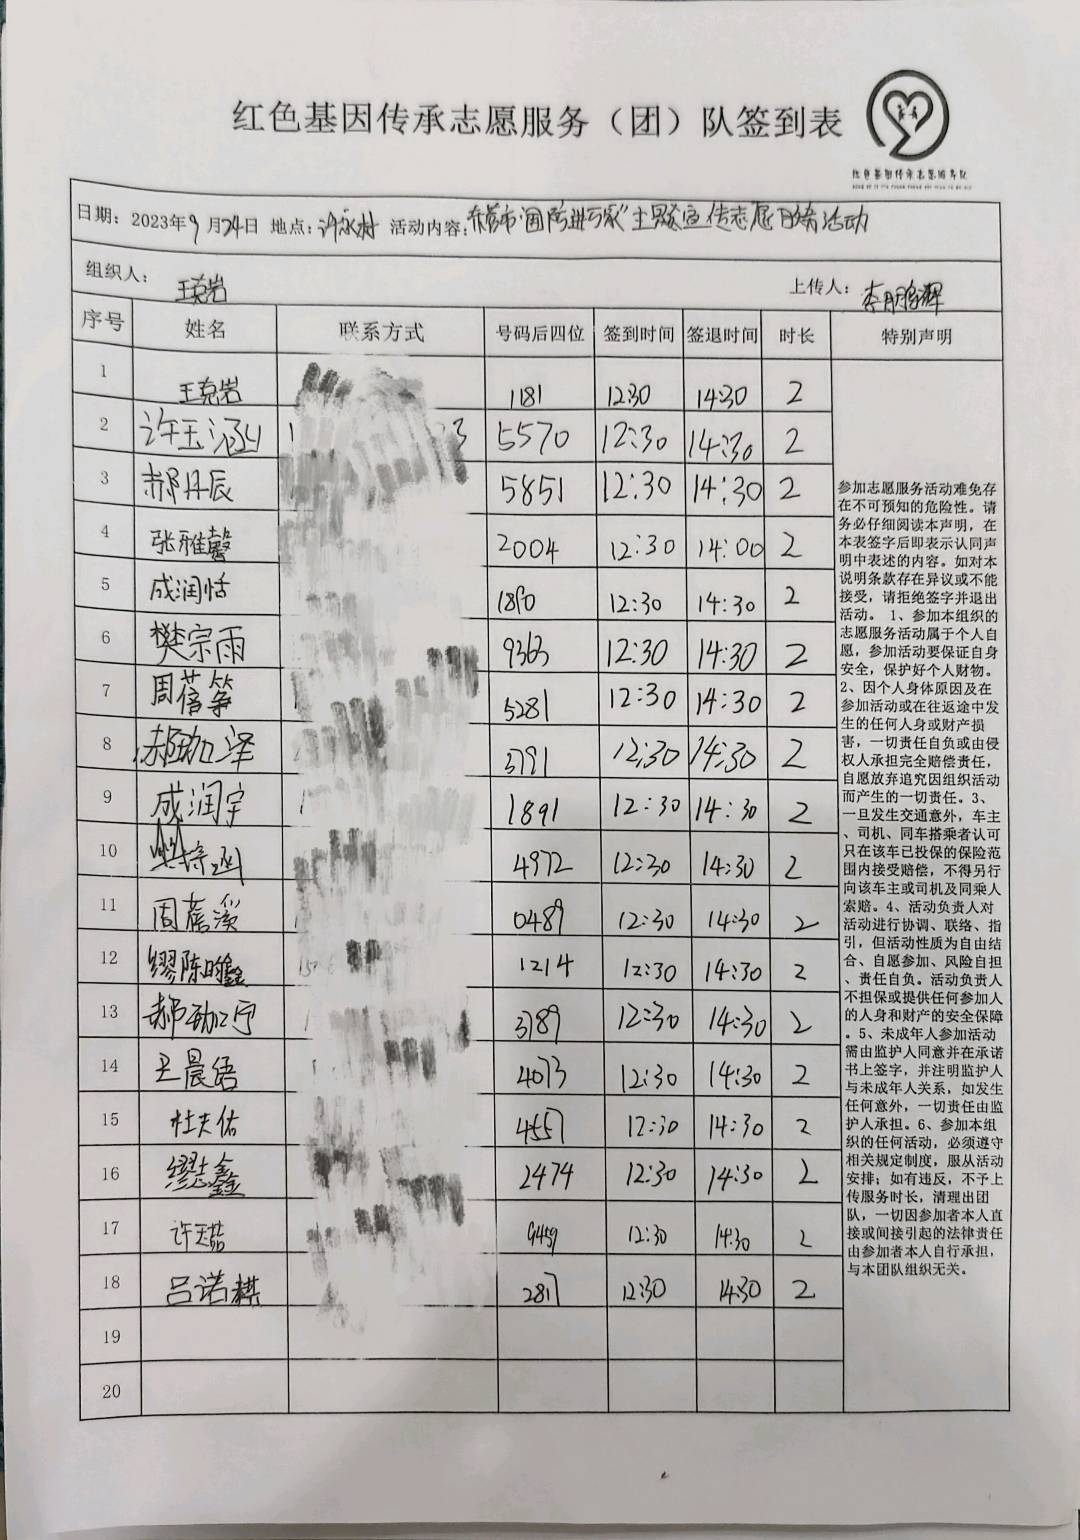 红色基因传承志愿服务（团）队签到表
红色基因传承志愿服务队
日期：2023年9月24日 地点：许家村 活动内容：东营市"国防进万家"主题宣传志愿服务活动
组织人：王克岩 上传人：李
序号 姓名 联系方式 号码后四位 签到时间 签退时间 时长 特别声明
1 王克岩 1181 12:30 14:30 2
2 许玉涵 5570 12:30 14:30 2
3 郝丹辰 5851 12:30 14:30 2
4 张雅馨 2004 12:30 14:00 2
5 成润恬 1890 12:30 14:30 2
6 樊宗雨 9363 12:30 14:30 2
7 周蓓筝 5281 12:30 14:30 2
8 郝珈泽 3791 12:30 14:30 2
9 成润宇 1891 12:30 14:30 2
10 4972 12:30 14:30 2
11 周蓓溪 0489 12:30 14:30 2
12 缪陈 鑫 1214 12:30 14:30 2
13 郝 宁 3789 12:30 14:30 2
14 王晨语 4073 12:30 14:30 2
15 杜天佑 4557 12:30 14:30 2
16 缪志鑫 2474 12:30 14:30 2
17 许 9459 12:30 14:30 2
18 吕诺棋 2817 12:30 14:30 2
19
20
参加志愿服务活动难免存
在不可预知的危险性。请
务必仔细阅读本声明，在
本表签字后即表示认同声
明中表述的内容。如对本
说明条款存在异议或不能
接受，请拒绝签字并退出
活动。 1、参加本组织的
志愿服务活动属于个人自
愿，参加活动要保证自身
安全，保护好个人财物。
2、因个人身体原因及在
参加活动或在往返途中发
生的任何人身或财产损
害，一切责任自负或由侵
权人承担完全赔偿责任，
自愿放弃追究因组织活动
而产生的一切责任。3、
一旦发生交通意外，车主
、司机、同车搭乘者认可
只在该车已投保的保险范
围内接受赔偿，不得另行
向该车主或司机及同乘人
索赔。4、活动负责人对
活动进行协调、联络、指
引，但活动性质为自由结
合、自愿参加、风险自担
、责任自负。活动负责人
不担保或提供任何参加人
的人身和财产的安全保障
。5、未成年人参加活动
需由监护人同意并在承诺
书上签字，并注明监护人
与未成年人关系，如发生
任何意外，一切责任由监
护人承担。6、参加本组
织的任何活动，必须遵守
相关规定制度，服从活动
安排；如有违反，不予上
传服务时长，清理出团
队，一切因参加者本人直
接或间接引起的法律责任
由参加者本人自行承担，
与本团队组织无关。